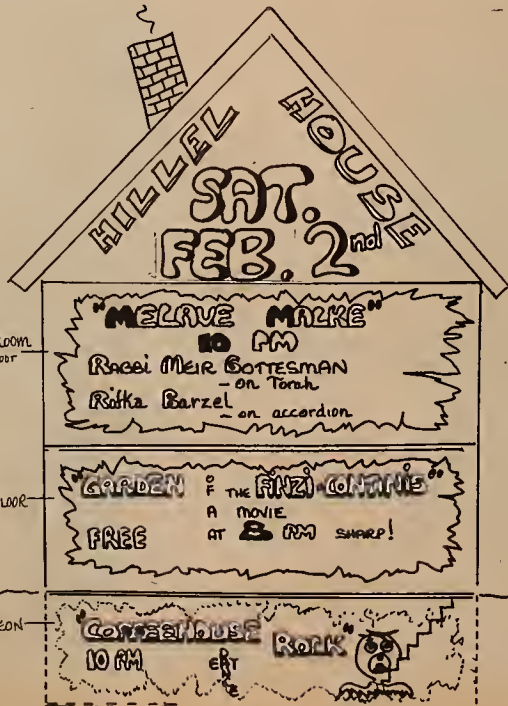 HILLEL HOUSE
SAT.
FEB. 2nd
"MELAVE MALKE"
10 PM
ROOM
RABBI MEIR GOTTESMAN
- on Torah
Rifka Barzel
- on accordion
"GARDEN OF THE FINZI-CONTINIS"
LOOR
A MOVIE
FREE AT 8 PM SHARP!
EON
"COFFEEHOUSE ROCK"
10 PM EAT
DANCE